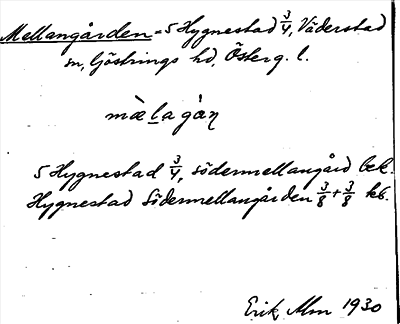 Mellangården = 5 Hygnestad 3/4, Väderstad
sn, Göstrings hd, Österg. l.
mæ̀lagàɳ
5 Hygnestad 3/4, södermellangård bek.
Hygnestad Södermellangården 3/8 + 3/8 kb.
Erik Alm 1930